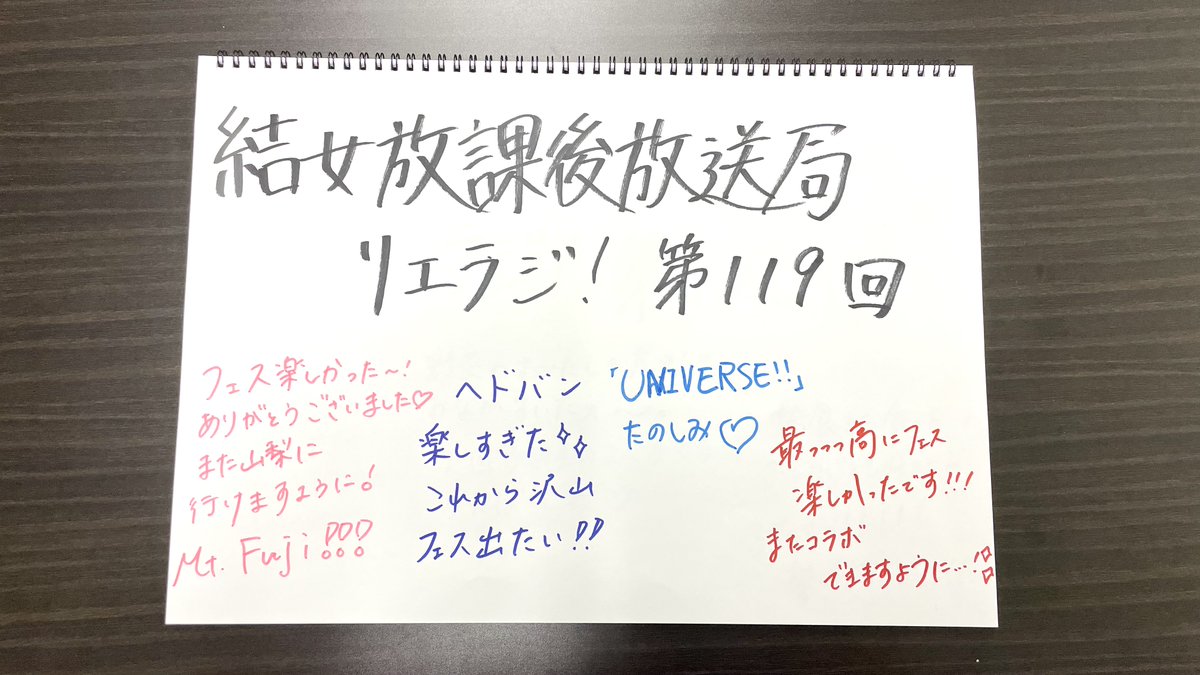 結女放課後放送局
リエラジ! 第119回
フェス楽しかった〜!
ありがとうございました♡
また山梨に
行けますように!
Mt. Fuji!!!
ヘドバン
楽しすぎた✧✧
これから沢山
フェス出たい!!
「UNIVERSE!!」
たのしみ♡
最っっっ高にフェス
楽しかったです!!!
またコラボ
できますように…!!